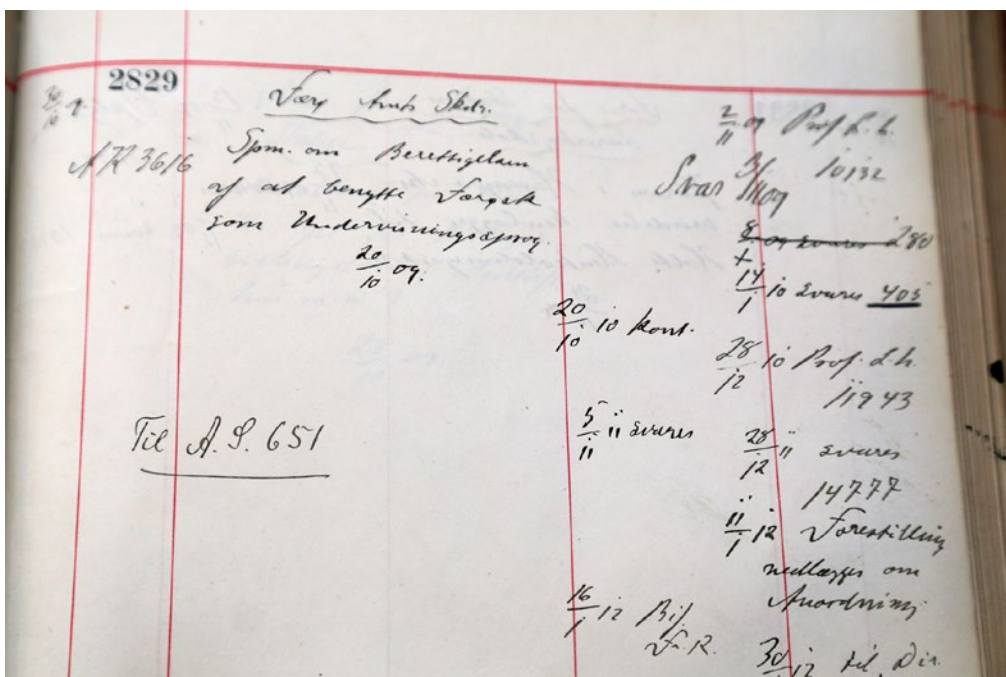 2829
Fær Amts Skdr.
A K 3616
Spm. om Berettigelsen
af at benytte Færøsk
som Undervisningssprog.
20/10 09.
Til A.S. 651
20/10 10 kont.
5/11 11 svares
16/1 12 Bif.
F.R.
2/11 09 Prof. d. h.
10132
Svar
8 09 svares 280
14/1 10 svares 405
28/12 10 Prof. d. h.
11943
28/12 11 svares
14777
11/1 12 Forestilling
nedlægges om
Anordning
30/ 12 til Dir.